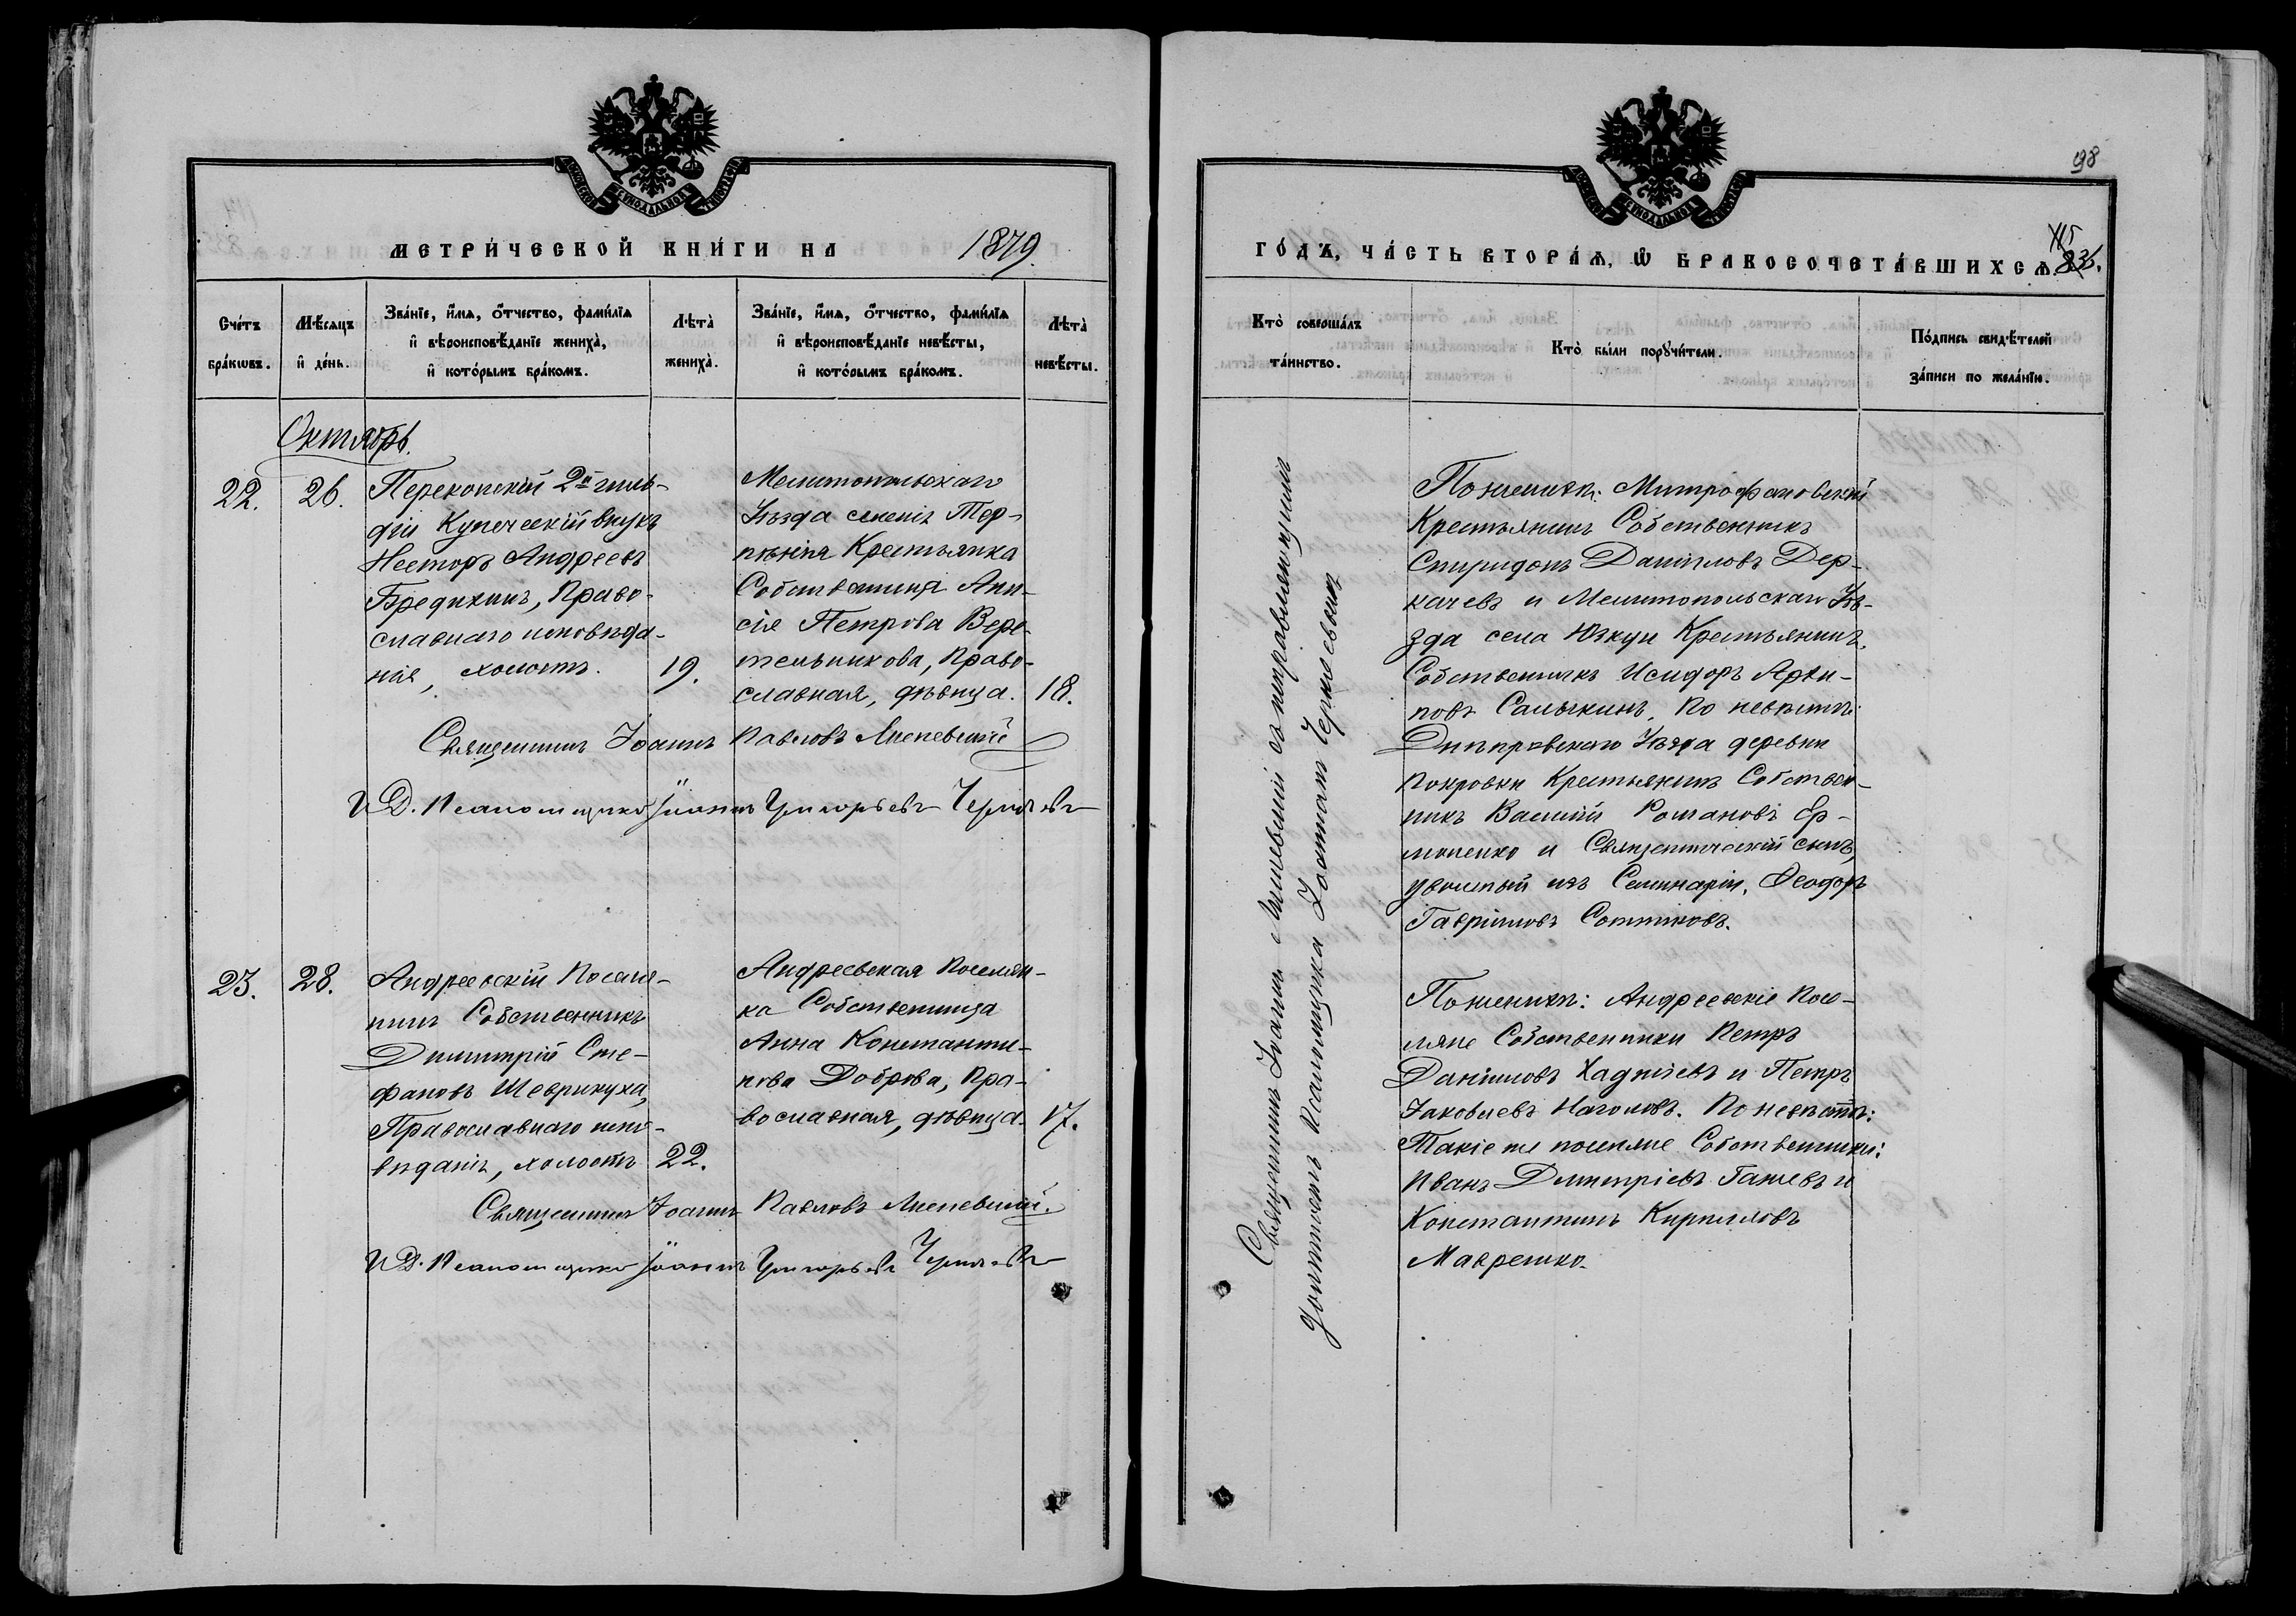 МЕТРИ́ЧЕСКОЙ КНИ́ГИ НА 1879.
Счéтъ бра́кωвъ.
Мѣ́сяцъ и҆ де́нь.
Зва́нїе, и҆́мѧ, ѻ҆́тчество, фами́лїѧ
и҆ вѣроисповѣ́данїе жениха̀,
и҆ кото́рымъ бра́комъ.
Лѣта̀ жениха̀.
Зва́нїе, и҆́мѧ, ѻ҆́тчество, фами́лїѧ
и҆ вѣроисповѣ́данїе невѣ́сты,
и҆ кото́рымъ бра́комъ.
Лѣта̀ невѣ́сты.
Октябрь.
22.
26.
Перекопскій 2й гиль-
діи Купеческій внукъ
Несторъ Андреевъ
Бредихинъ, Право-
славнаго исповѣда-
нія, холостъ.
19.
Мелитопольскаго
Уѣзда селенія Тер-
пѣнія Крестьянка
Собственница Ани-
сія Петрова Вере-
тельникова, Право-
славная, дѣвица.
18.
Священникъ Іоаннъ Павловъ
И.Д. Псаломщика Іоаннъ Григорьевъ
23.
28.
Андреевскій Поселя-
нинъ Собственникъ
Димитрій Сте-
фановъ Шеврикуха,
Православнаго испо-
вѣданія, холостъ
22.
Андреевская Поселян-
ка Собственница
Анна Константи-
нова Доброва, Пра-
вославная, дѣвица.
17.
Священникъ Іоаннъ Павловъ
И.Д. Псаломщика Іоаннъ Григорьевъ
98
ГО́ДЪ, ЧА́СТЬ ВТОРА́Ѧ, Ѡ҆ БРАКОСОЧЕТА́ВШИХСѦ.
115
835.
Кто̀ соверша́лъ та́инство.
Кто̀ бы́ли порꙋчи́тели.
По́дпись свидѣ́телей
за́писи по жела́нїю.
Священникъ Іоаннъ съ исправляющимъ
должность Псаломщика Іоанномъ
По женихѣ: Митрофановскій
Крестьянинъ Собственникъ
Спиридонъ Даніиловъ Дер-
качевъ и Мелитопольскаго Уѣ-
зда села Юзкуи Крестьянинъ
Собственникъ Исидоръ Архи-
повъ Салыкинъ, По невѣстѣ:
Днѣпровскаго Уѣзда деревни
Покровки Крестьянинъ Собствен-
никъ Василій Романовъ Ер-
моленко и Священническій сынъ,
уволенный изъ Семинаріи, Ѳеодоръ
Гавріиловъ Сотниковъ.
По женихѣ: Андреевскіе Посе-
ляне Собственники Петръ
Даніиловъ Хаджіевъ и Петръ
Іаковлевъ Наголовъ. По невѣстѣ:
Такіе же поселяне Собственники:
Иванъ Димитріевъ Ганевъ и
Константинъ Кирилловъ
Мавренко.